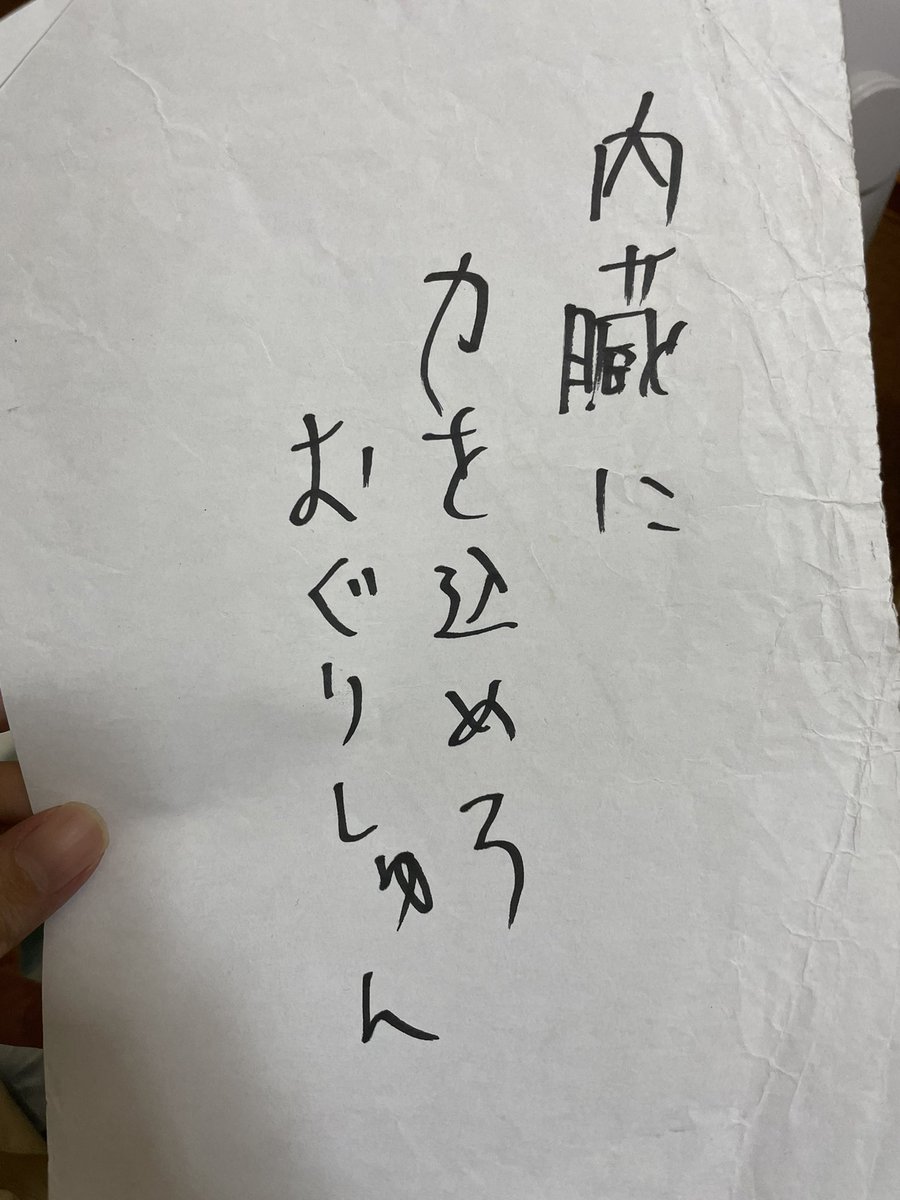 内臓に
力を込めろ
おぐりしゅん